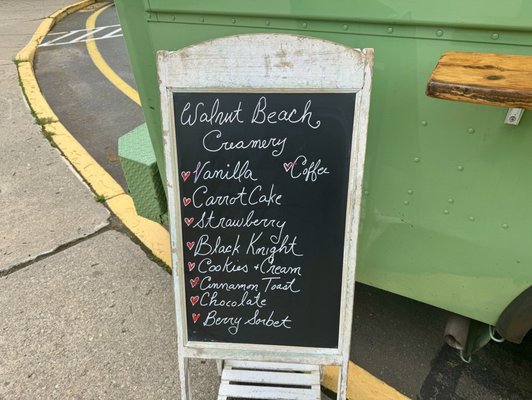 Walnut Beach
Creamery
Vanilla
Coffee
Carrot Cake
Strawberry
Black Knight
Cookies + Cream
Cinnamon Toast
Chocolate
Berry Sorbet